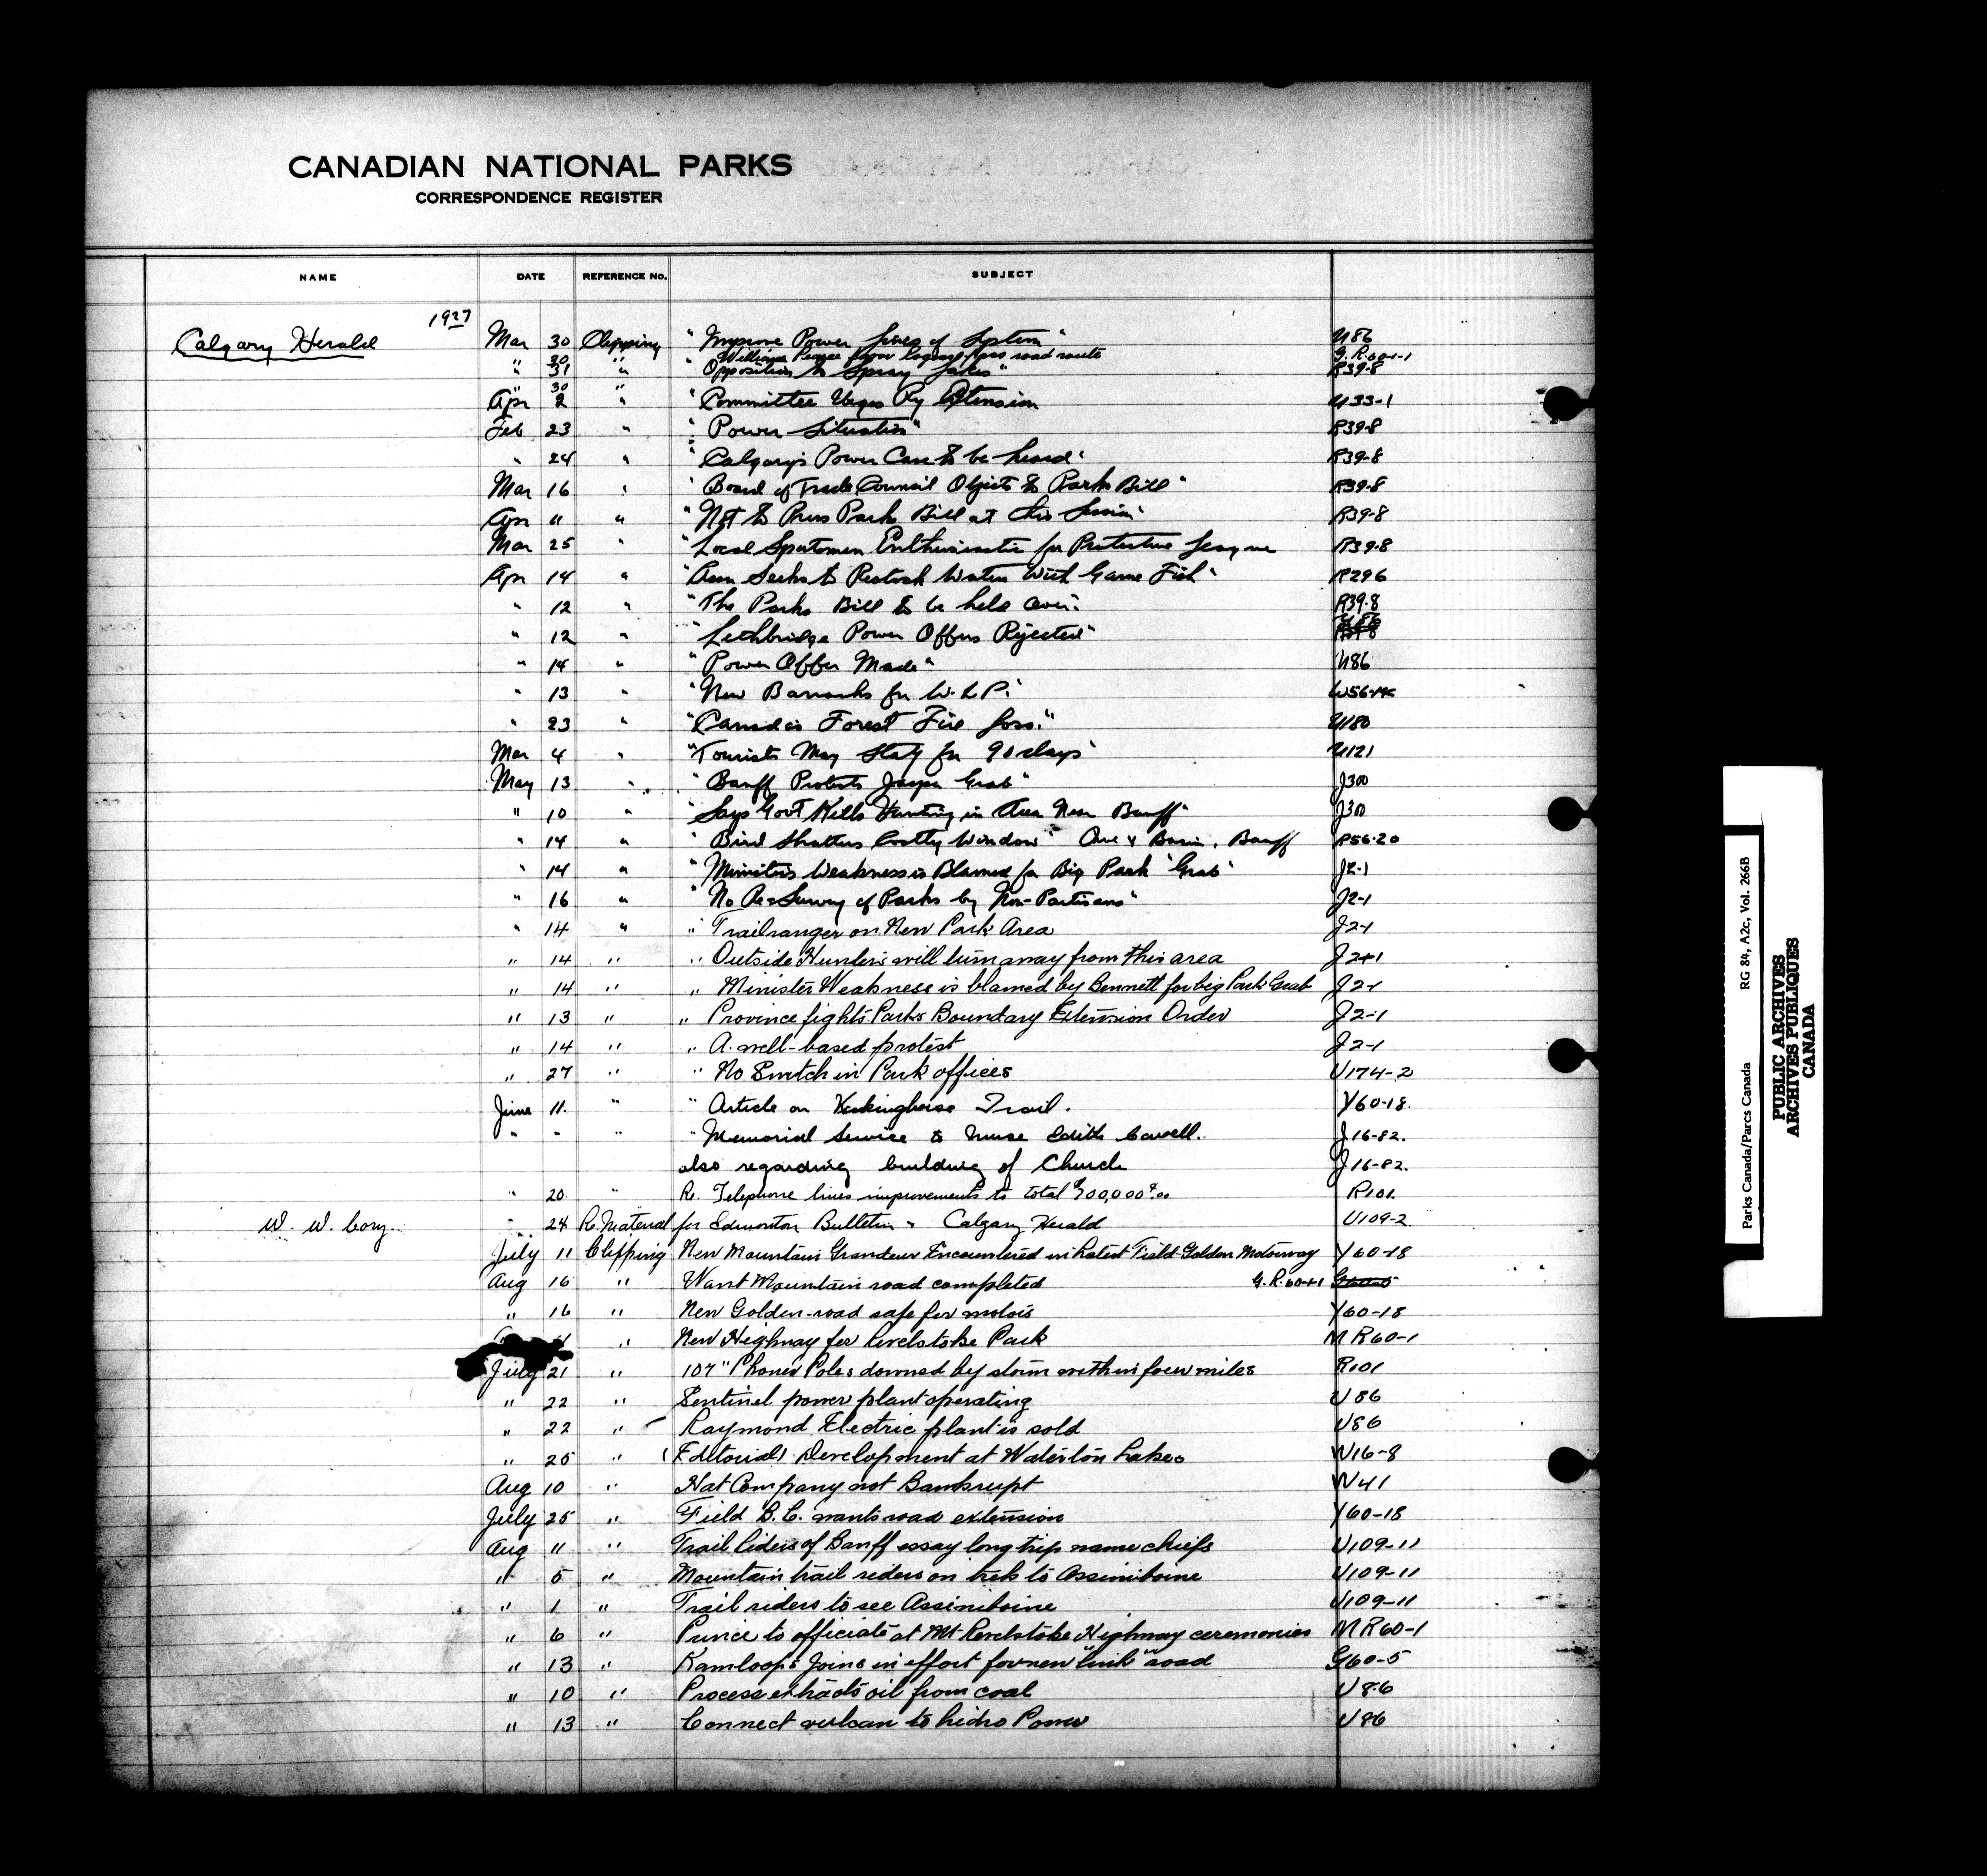 CANADIAN NATIONAL PARKS
CORRESPONDENCE REGISTER
NAME DATE REFERENCE No. SUBJECT
1927
Calgary Herald Mar 30 Clipping "Improve Power Lines of System" U86
" 30 " " William Pearce road route G.R.60-1-1
" 31 " "Opposition to Spray Lakes" R39-8
" 30 "
Apr 2 " "Committee Urges Ry Extension U33-1
Feb 23 " "Power Situation" R39-8
" 24 " "Calgary's Power Case to be heard" R39-8
Mar 16 " "Board of Trade Council Objects to Parks Bill" R39-8
Apr " " "Not to Press Parks Bill at this Session" R39-8
Mar 25 " "Local Sportsmen Enthusiastic for Protective League R39-8
Apr 14 " "Assn Seeks to Restock Waters With Game Fish" R296
" 12 " "The Parks Bill to be held over" R39-8
" 12 " "Lethbridge Power Offers Rejected" U86
" 14 " "Power Offer Made" U86
" 13 " "New Barracks for W.L.P." W56
" 23 " "Canada's Forest Fire Loss" U180
Mar 4 " "Tourists May Stay for 90 days" U121
May 13 " "Banff Protests Jasper Grab" J300
" 10 " "Says Govt Kills Hunting in Area Near Banff" J300
" 14 " "Bird Shatters Costly Window" Cave & Basin, Banff R56-20
" 14 " "Minister's Weakness is Blamed for Big Park 'Grab' J2-1
" 16 " "No Re-Survey of Parks by Non-Partisans" J2-1
" 14 " " Trailranger on New Park Area J2-1
" 14 " " Outside Hunters will turn away from this area J2-1
" 14 " " Minister Weakness is blamed by Bennett for big Park Grab J2-1
" 13 " " Province fights Parks Boundary Extension Order J2-1
" 14 " " A well-based protest J2-1
" 27 " " No Switch in Park offices U174-2
June 11. " " Article on Kickinghorse Trail. Y60-18.
" " " " Memorial Service to Nurse Edith Cavell. J16-82.
also regarding building of Church J16-82.
" 20. " Re. Telephone lines improvements to total $700,000.00 R101.
W. W. Cory. " 24 Re. Material for Edmonton Bulletin & Calgary Herald U109-2
July 11 Clipping New Mountain Grandeur Encountered in Latest Field-Golden Motorway Y60-18
Aug 16 " Want Mountain road completed G.R.60-1-1 G60-5
" 16 " New Golden-road safe for motors Y60-18
" New Highway for Revelstoke Park MR60-1
July 21 " 107 "Phones Poles downed by storm within four miles R101
" 22 " Sentinel power plant operating U86
" 22 " Raymond Electric plant is sold U86
" 25 " (Editorial) Development at Waterton Lakes W16-8
Aug 10 " Nat Company not Bankrupt W41
July 25 " Field B.C. wants road extension Y60-18
Aug 11 " Trail Riders of Banff essay long trip name chiefs U109-11
" 5 " Mountain trail riders on trek to Assiniboine U109-11
" 1 " Trail riders to see Assiniboine U109-11
" 6 " Prince to officiate at Mt. Revelstoke Highway ceremonies MR60-1
" 13 " Kamloops Joins in effort for new "link" road G60-5
" 10 " Process extracts oil from coal U86
" 13 " Connect vulcan to hidro Power U86
Parks Canada/Parcs Canada RG 84, A2c, Vol. 266B
PUBLIC ARCHIVES
ARCHIVES PUBLIQUES
CANADA